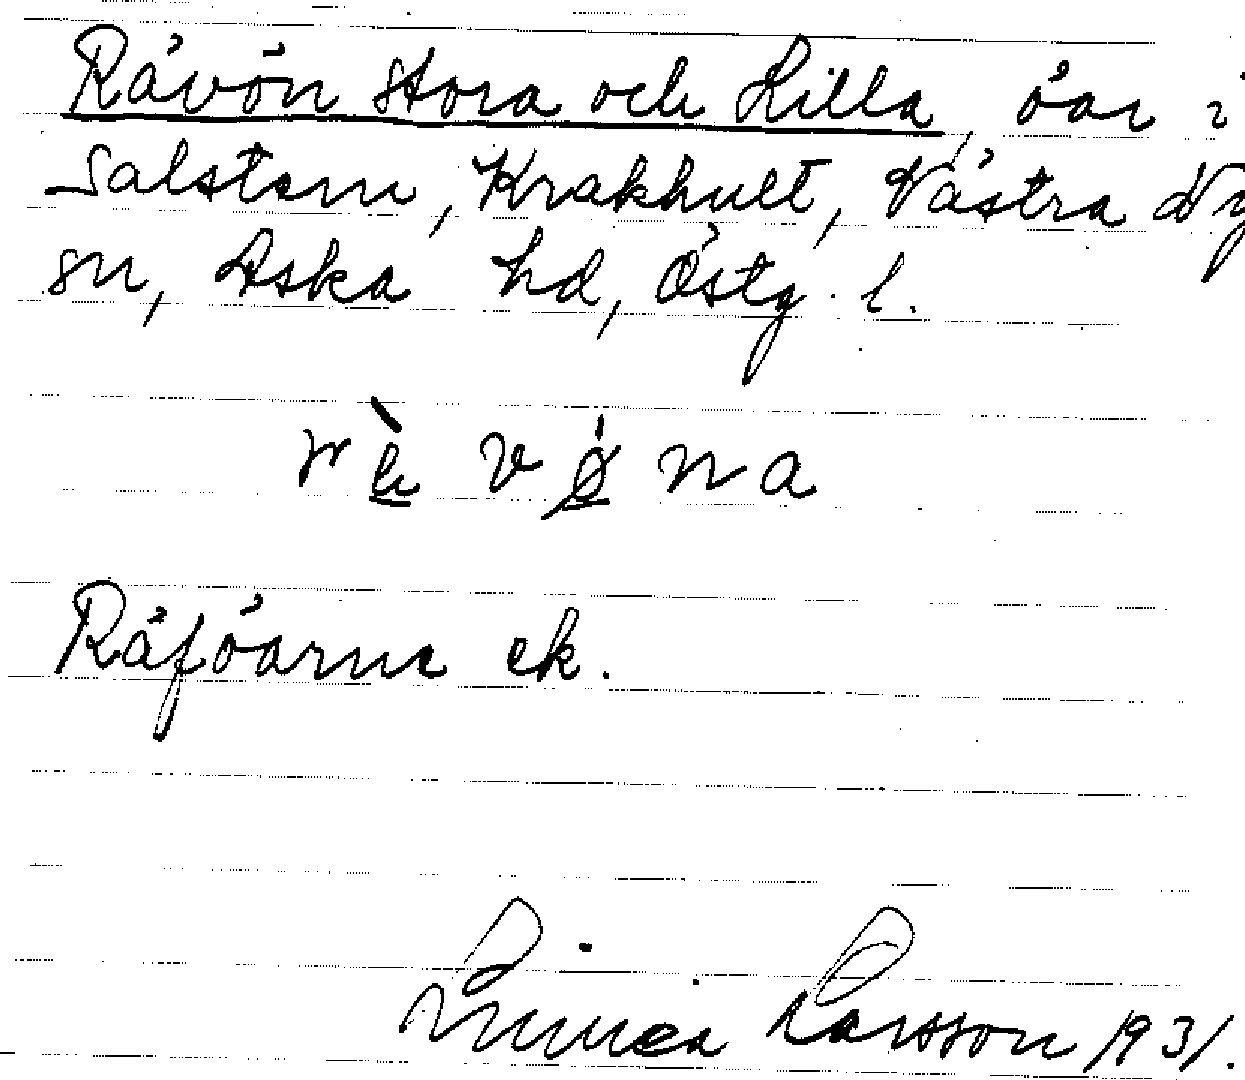 Rävön Stora och Lilla, öar i
Salstern, Krakhult, Västra Ny
sn, Aska hd, Östg. l.
r è v ǿ n a
Räföarne ek.
Linnea Larsson 1931.